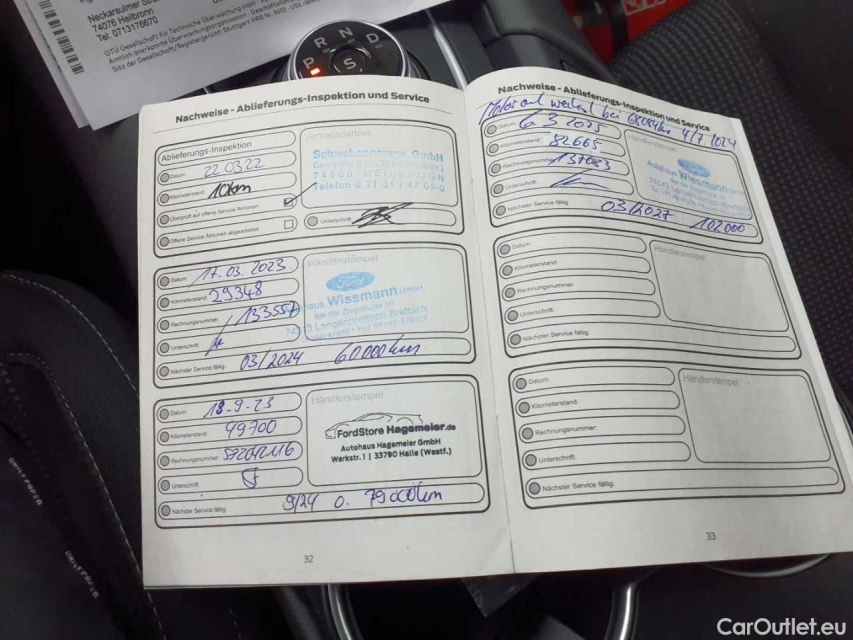 Neckarsulmer Str
74076 Heilbronn
Tel: 0713176670
GTÜ Gesellschaft für Technische Überwachung mbH
Amtlich anerkannte Überwachungsorganisation
Sitz der Gesellschaft/Registergericht: Stuttgart HRB
P R N D
S
Nachweise - Ablieferungs-Inspektion und Service
Ablieferungs-Inspektion
Datum: 22.03.22
Kilometerstand: 10km
Überprüft auf offene Service Aktionen:
Offene Service Aktionen abgearbeitet:
Vertragspartner
Schwabengarage GmbH
74080 HEILBRONN
Telefon 0 71 31 / 47 05-0
Unterschrift:
Datum: 17.03.2023
Kilometerstand: 29348
Rechnungsnummer: 133557
Unterschrift:
Nächster Service fällig: 03/2024 60000km
Händlerstempel
Ford
Autohaus Wissmann GmbH
Datum: 18.9.23
Kilometerstand: 49700
Rechnungsnummer:
Unterschrift:
Nächster Service fällig: 9/24 o. 79000km
Händlerstempel
FordStore Hagemeier.de
Autohaus Hagemeier GmbH
Werkstr. 1 | 33790 Halle (Westf.)
32
Nachweise - Ablieferungs-Inspektion und Service
bei 68084km 4/7.2024
Datum: 6.3.2025
Kilometerstand: 82665
Rechnungsnummer: 137083
Unterschrift:
Nächster Service fällig: 03/2027 102000
Ford
Autohaus
Wissmann GmbH
Datum:
Kilometerstand:
Rechnungsnummer:
Unterschrift:
Nächster Service fällig:
Händlerstempel
Datum:
Kilometerstand:
Rechnungsnummer:
Unterschrift:
Nächster Service fällig:
Händlerstempel
33
CarOutlet.eu